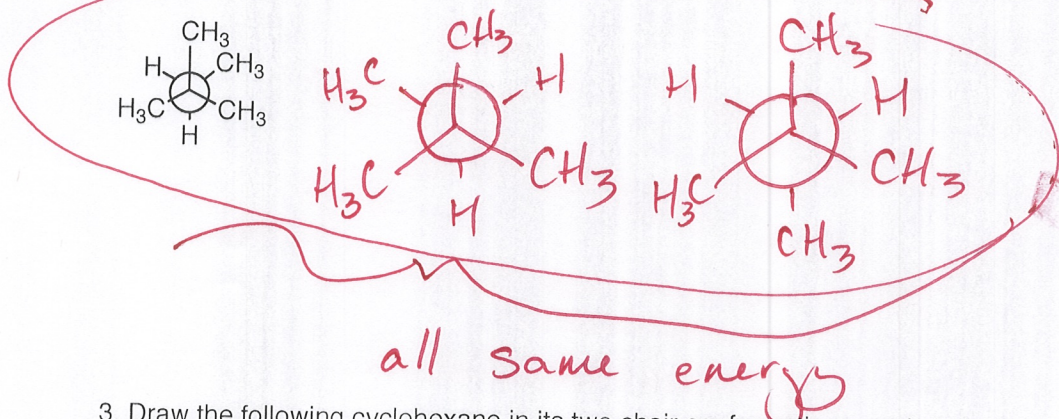 CH3
H CH3
H3C CH3
H
CH3
H3C H
H3C CH3
H
CH3
H H
H3C CH3
CH3
all same energy
3. Draw the following cyclohexane in its two chair